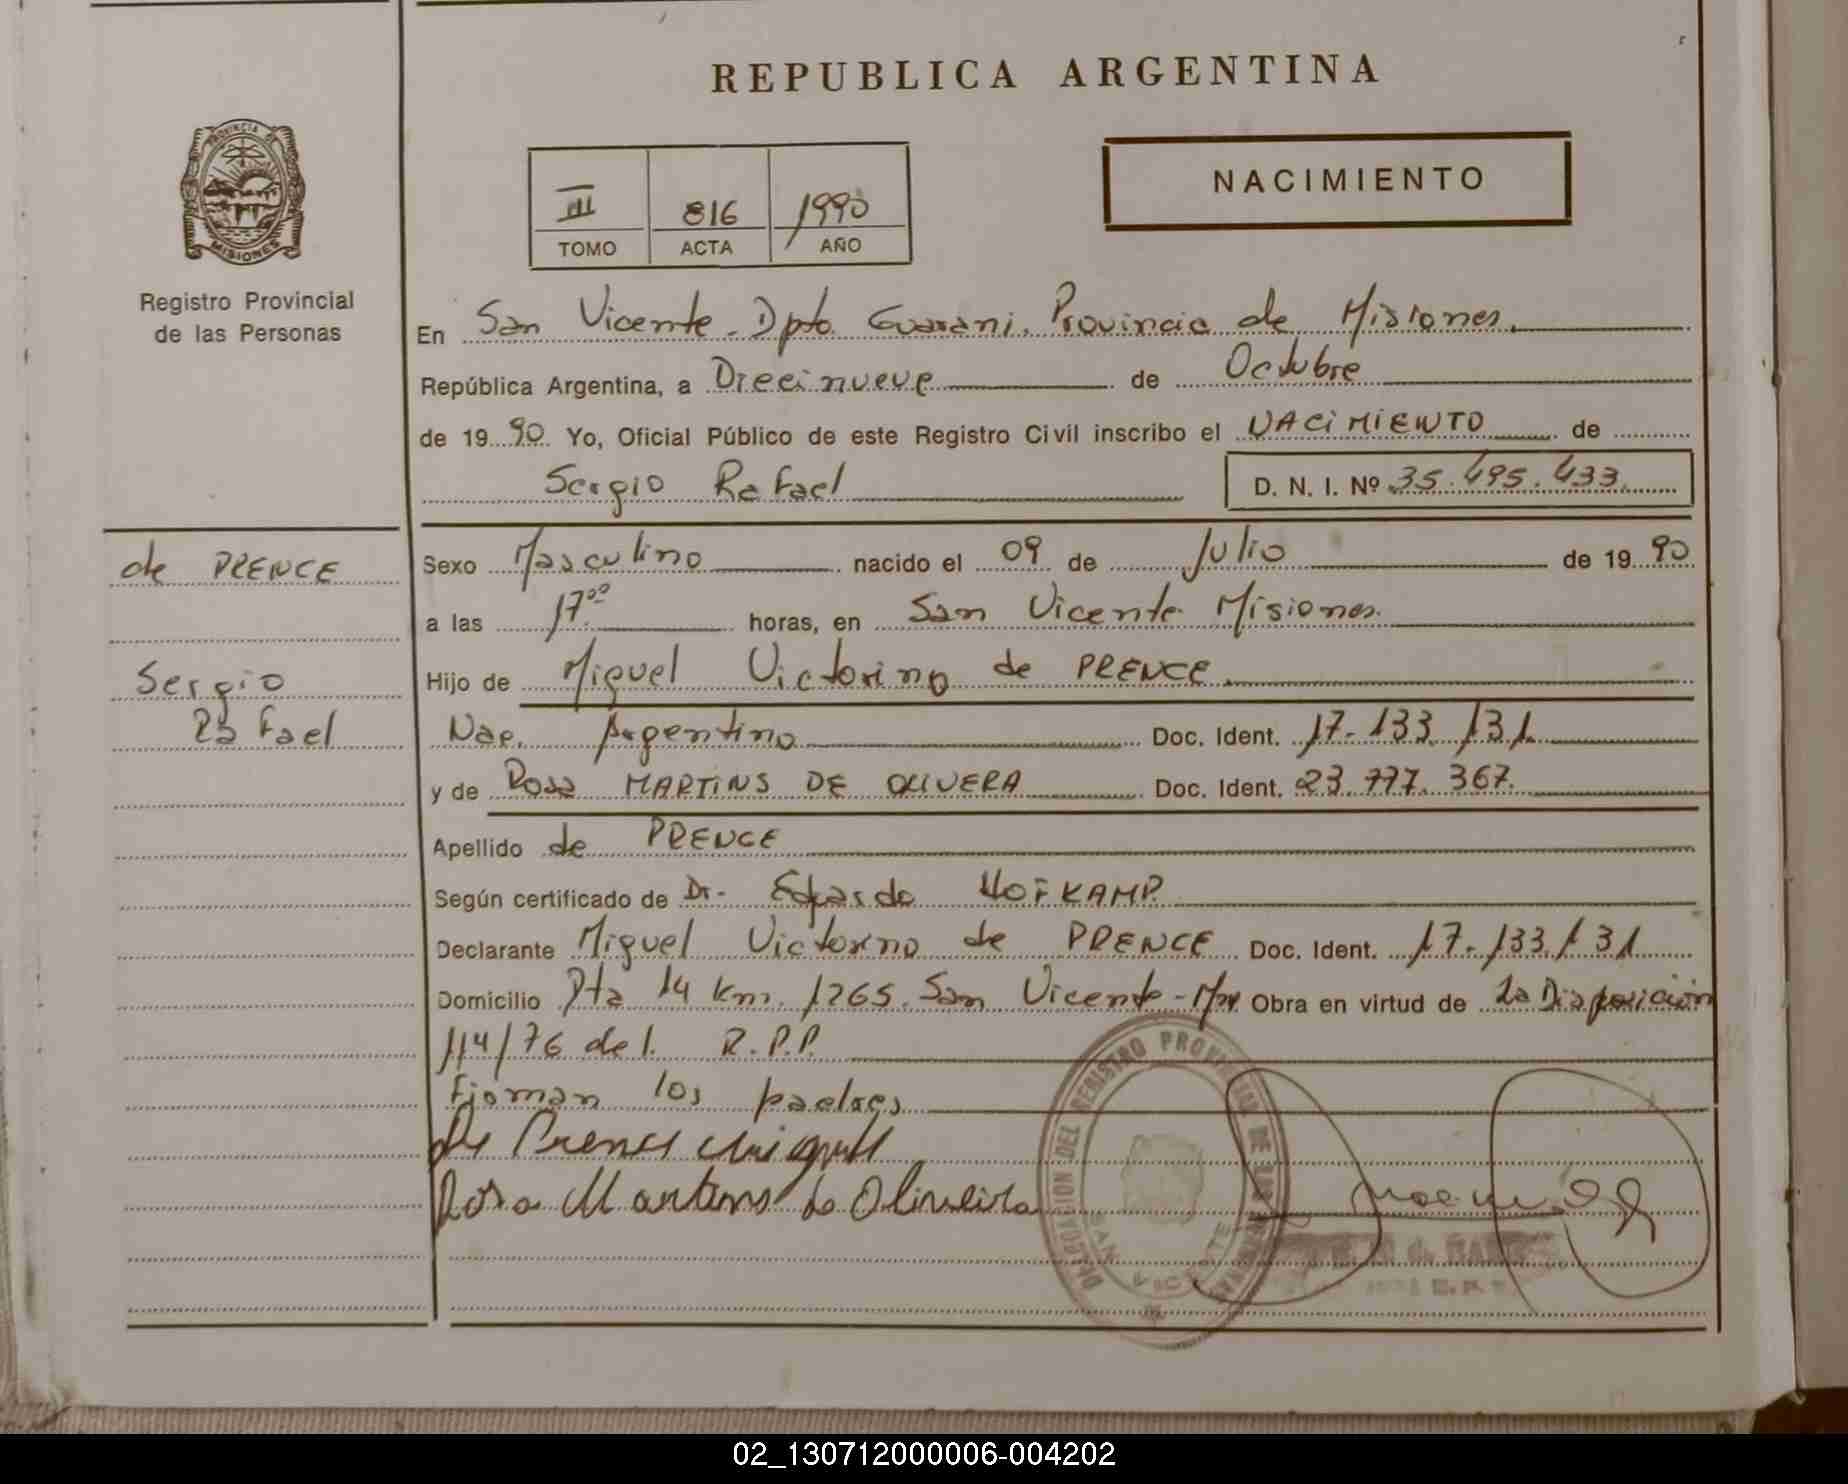 REPUBLICA ARGENTINA
PROVINCIA DE
MISIONES
Registro Provincial
de las Personas
III 816 1990
TOMO ACTA AÑO
NACIMIENTO
En San Vicente - Dpto. Guarani. Provincia de Misiones.
República Argentina, a Diecinueve de Octubre
de 1990 Yo, Oficial Público de este Registro Civil inscribo el NACIMIENTO de
Sergio Rafael D. N. I. Nº 35.495.433.
de PRENCE
Sergio
Rafael
Sexo Masculino nacido el 09 de Julio de 1990
a las 17.00 horas, en San Vicente Misiones.
Hijo de Miguel Victorino de PRENCE
Nac. Argentino Doc. Ident. 17.133.131.
y de Rosa MARTINS DE OLIVERA Doc. Ident. 23.777.367.
Apellido de PRENCE
Según certificado de Dr. Eduardo HOFKAMP.
Declarante Miguel Victorino de PRENCE Doc. Ident. 17.133.131
Domicilio Pta 14 Km. 1265. San Vicente - Mnes Obra en virtud de La Disposición
114/76 del R.P.P.
Firman los padres
De Prence Miguel
Rosa Martins de Oliveira
DELEGACION DEL REGISTRO PROVINCIAL DE LAS PERSONAS
SAN VICENTE
02_130712000006-004202